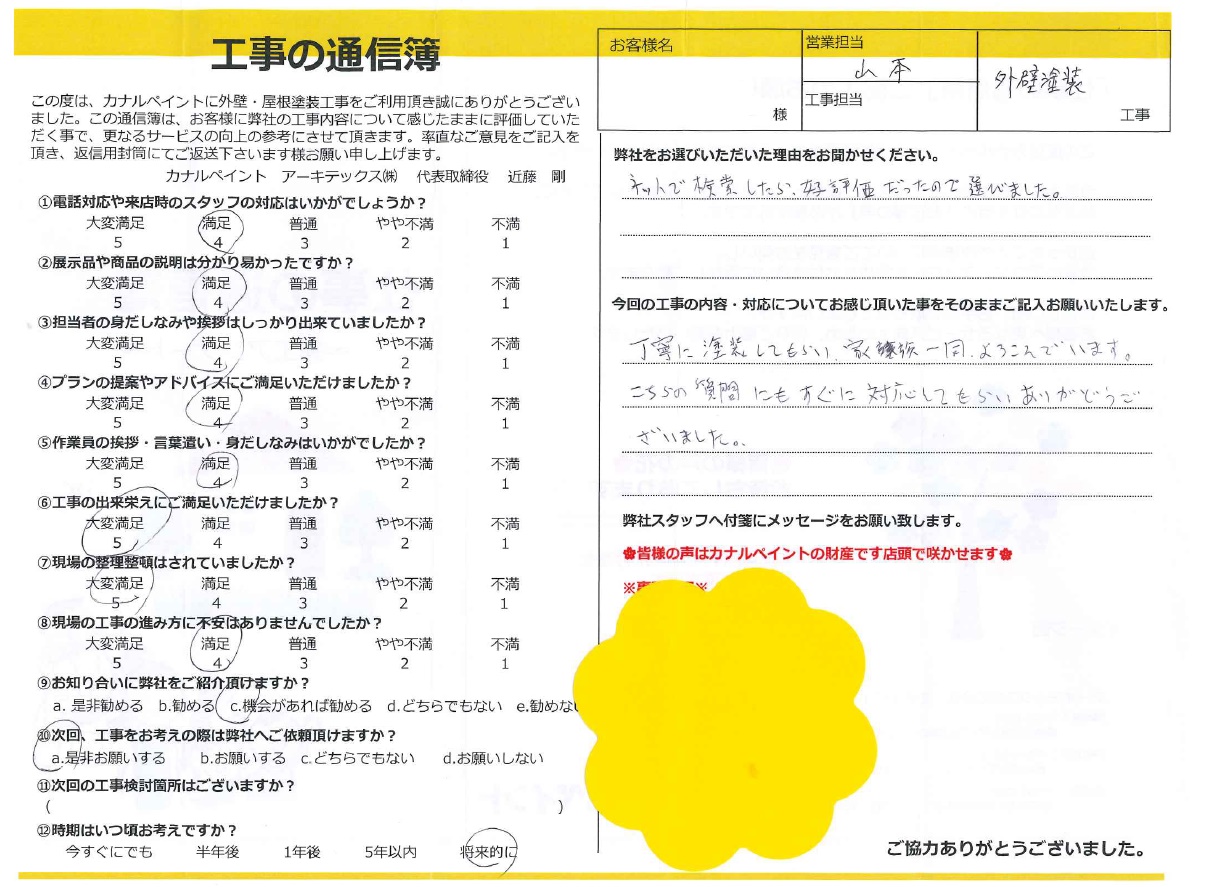 工事の通信簿
この度は、カナルペイントに外壁・屋根塗装工事をご利用頂き誠にありがとうござい
ました。この通信簿は、お客様に弊社の工事内容について感じたままに評価していた
だく事で、更なるサービスの向上の参考にさせて頂きます。率直なご意見をご記入を
頂き、返信用封筒にてご返送下さいます様お願い申し上げます。
カナルペイント アーキテックス㈱ 代表取締役 近藤 剛
①電話対応や来店時のスタッフの対応はいかがでしょうか？
大変満足 満足 普通 やや不満 不満
5 4 3 2 1
②展示品や商品の説明は分かり易かったですか？
大変満足 満足 普通 やや不満 不満
5 4 3 2 1
③担当者の身だしなみや挨拶はしっかり出来ていましたか？
大変満足 満足 普通 やや不満 不満
5 4 3 2 1
④プランの提案やアドバイスにご満足いただけましたか？
大変満足 満足 普通 やや不満 不満
5 4 3 2 1
⑤作業員の挨拶・言葉遣い・身だしなみはいかがでしたか？
大変満足 満足 普通 やや不満 不満
5 4 3 2 1
⑥工事の出来栄えにご満足いただけましたか？
大変満足 満足 普通 やや不満 不満
5 4 3 2 1
⑦現場の整理整頓はされていましたか？
大変満足 満足 普通 やや不満 不満
5 4 3 2 1
⑧現場の工事の進み方に不安はありませんでしたか？
大変満足 満足 普通 やや不満 不満
5 4 3 2 1
⑨お知り合いに弊社をご紹介頂けますか？
a. 是非勧める b.勧める c.機会があれば勧める d.どちらでもない e.勧めない
⑩次回、工事をお考えの際は弊社へご依頼頂けますか？
a.是非お願いする b.お願いする c.どちらでもない d.お願いしない
⑪次回の工事検討箇所はございますか？
( )
⑫時期はいつ頃お考えですか？
今すぐにでも 半年後 1年後 5年以内 将来的に
お客様名
様
営業担当
山本
工事担当
外壁塗装
工事
弊社をお選びいただいた理由をお聞かせください。
ネットで検索したら、好評価だったので選びました。
今回の工事の内容・対応についてお感じ頂いた事をそのままご記入お願いいたします。
丁寧に塗装してもらい、家族一同、よろこんでいます。
こちらの質問にもすぐに対応してもらいありがどうご
ざいました。
弊社スタッフへ付箋にメッセージをお願い致します。
皆様の声はカナルペイントの財産です店頭で咲かせます
ご協力ありがとうございました。